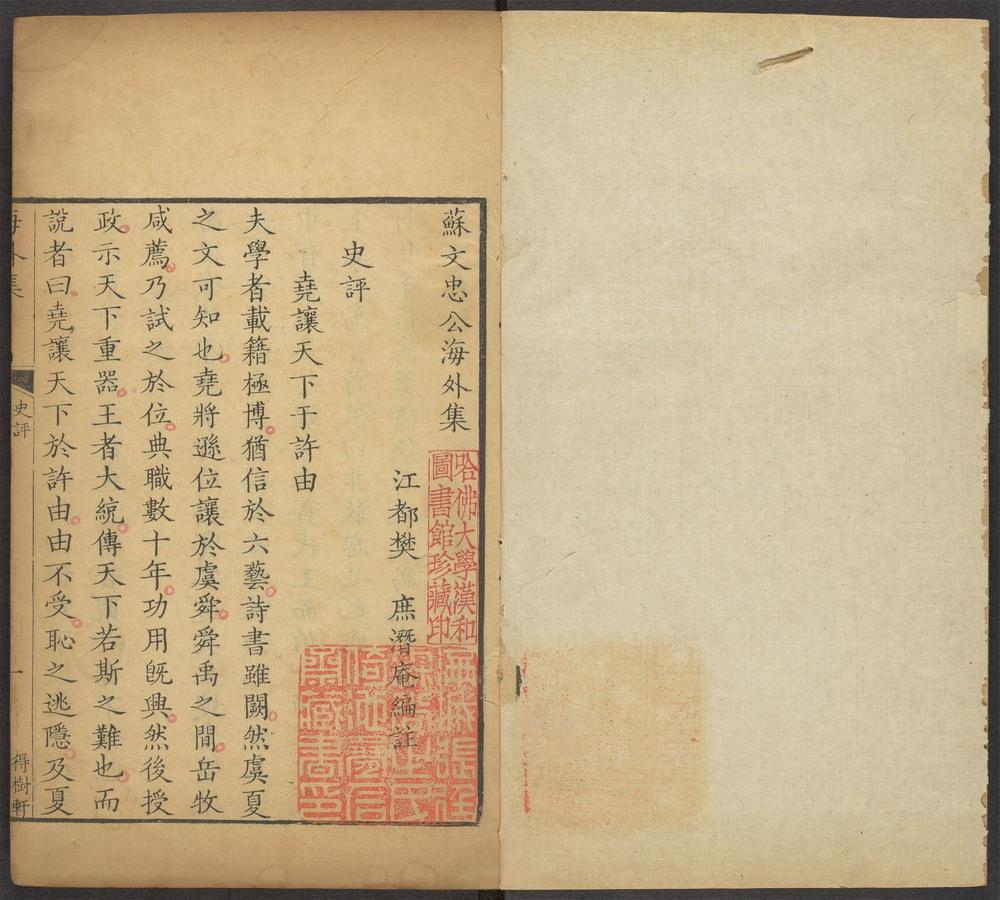 蘇文忠公海外集
江都樊 庶潛庵編註
史評
堯讓天下于許由
夫學者載籍極博猶信於六藝詩書雖闕然虞夏
之文可知也堯將遜位讓於虞舜舜禹之間岳牧
咸薦乃試之於位典職數十年功用旣興然後授
政示天下重器王者大統傳天下若斯之難也而
說者曰堯讓天下於許由由不受恥之逃隱及夏
史評
一
得樹軒
哈佛大學漢和
圖書館珍藏印